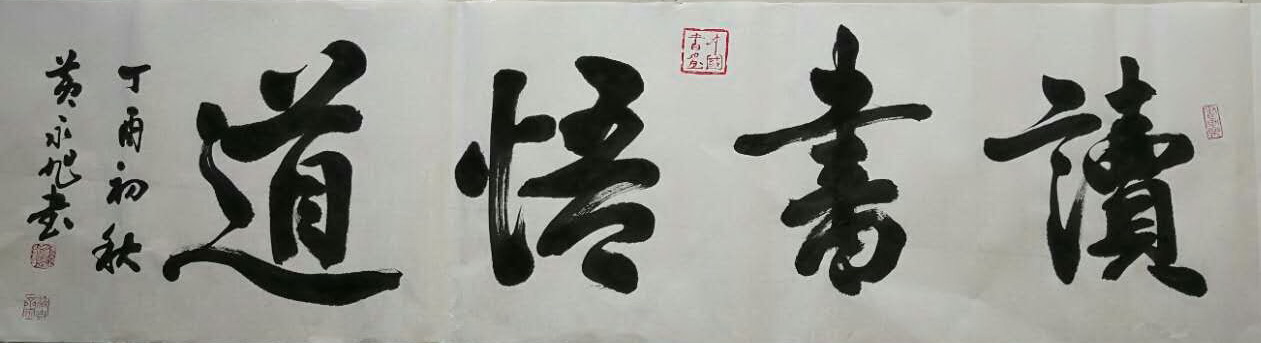 讀書悟道
丁酉初秋
黄永旭書